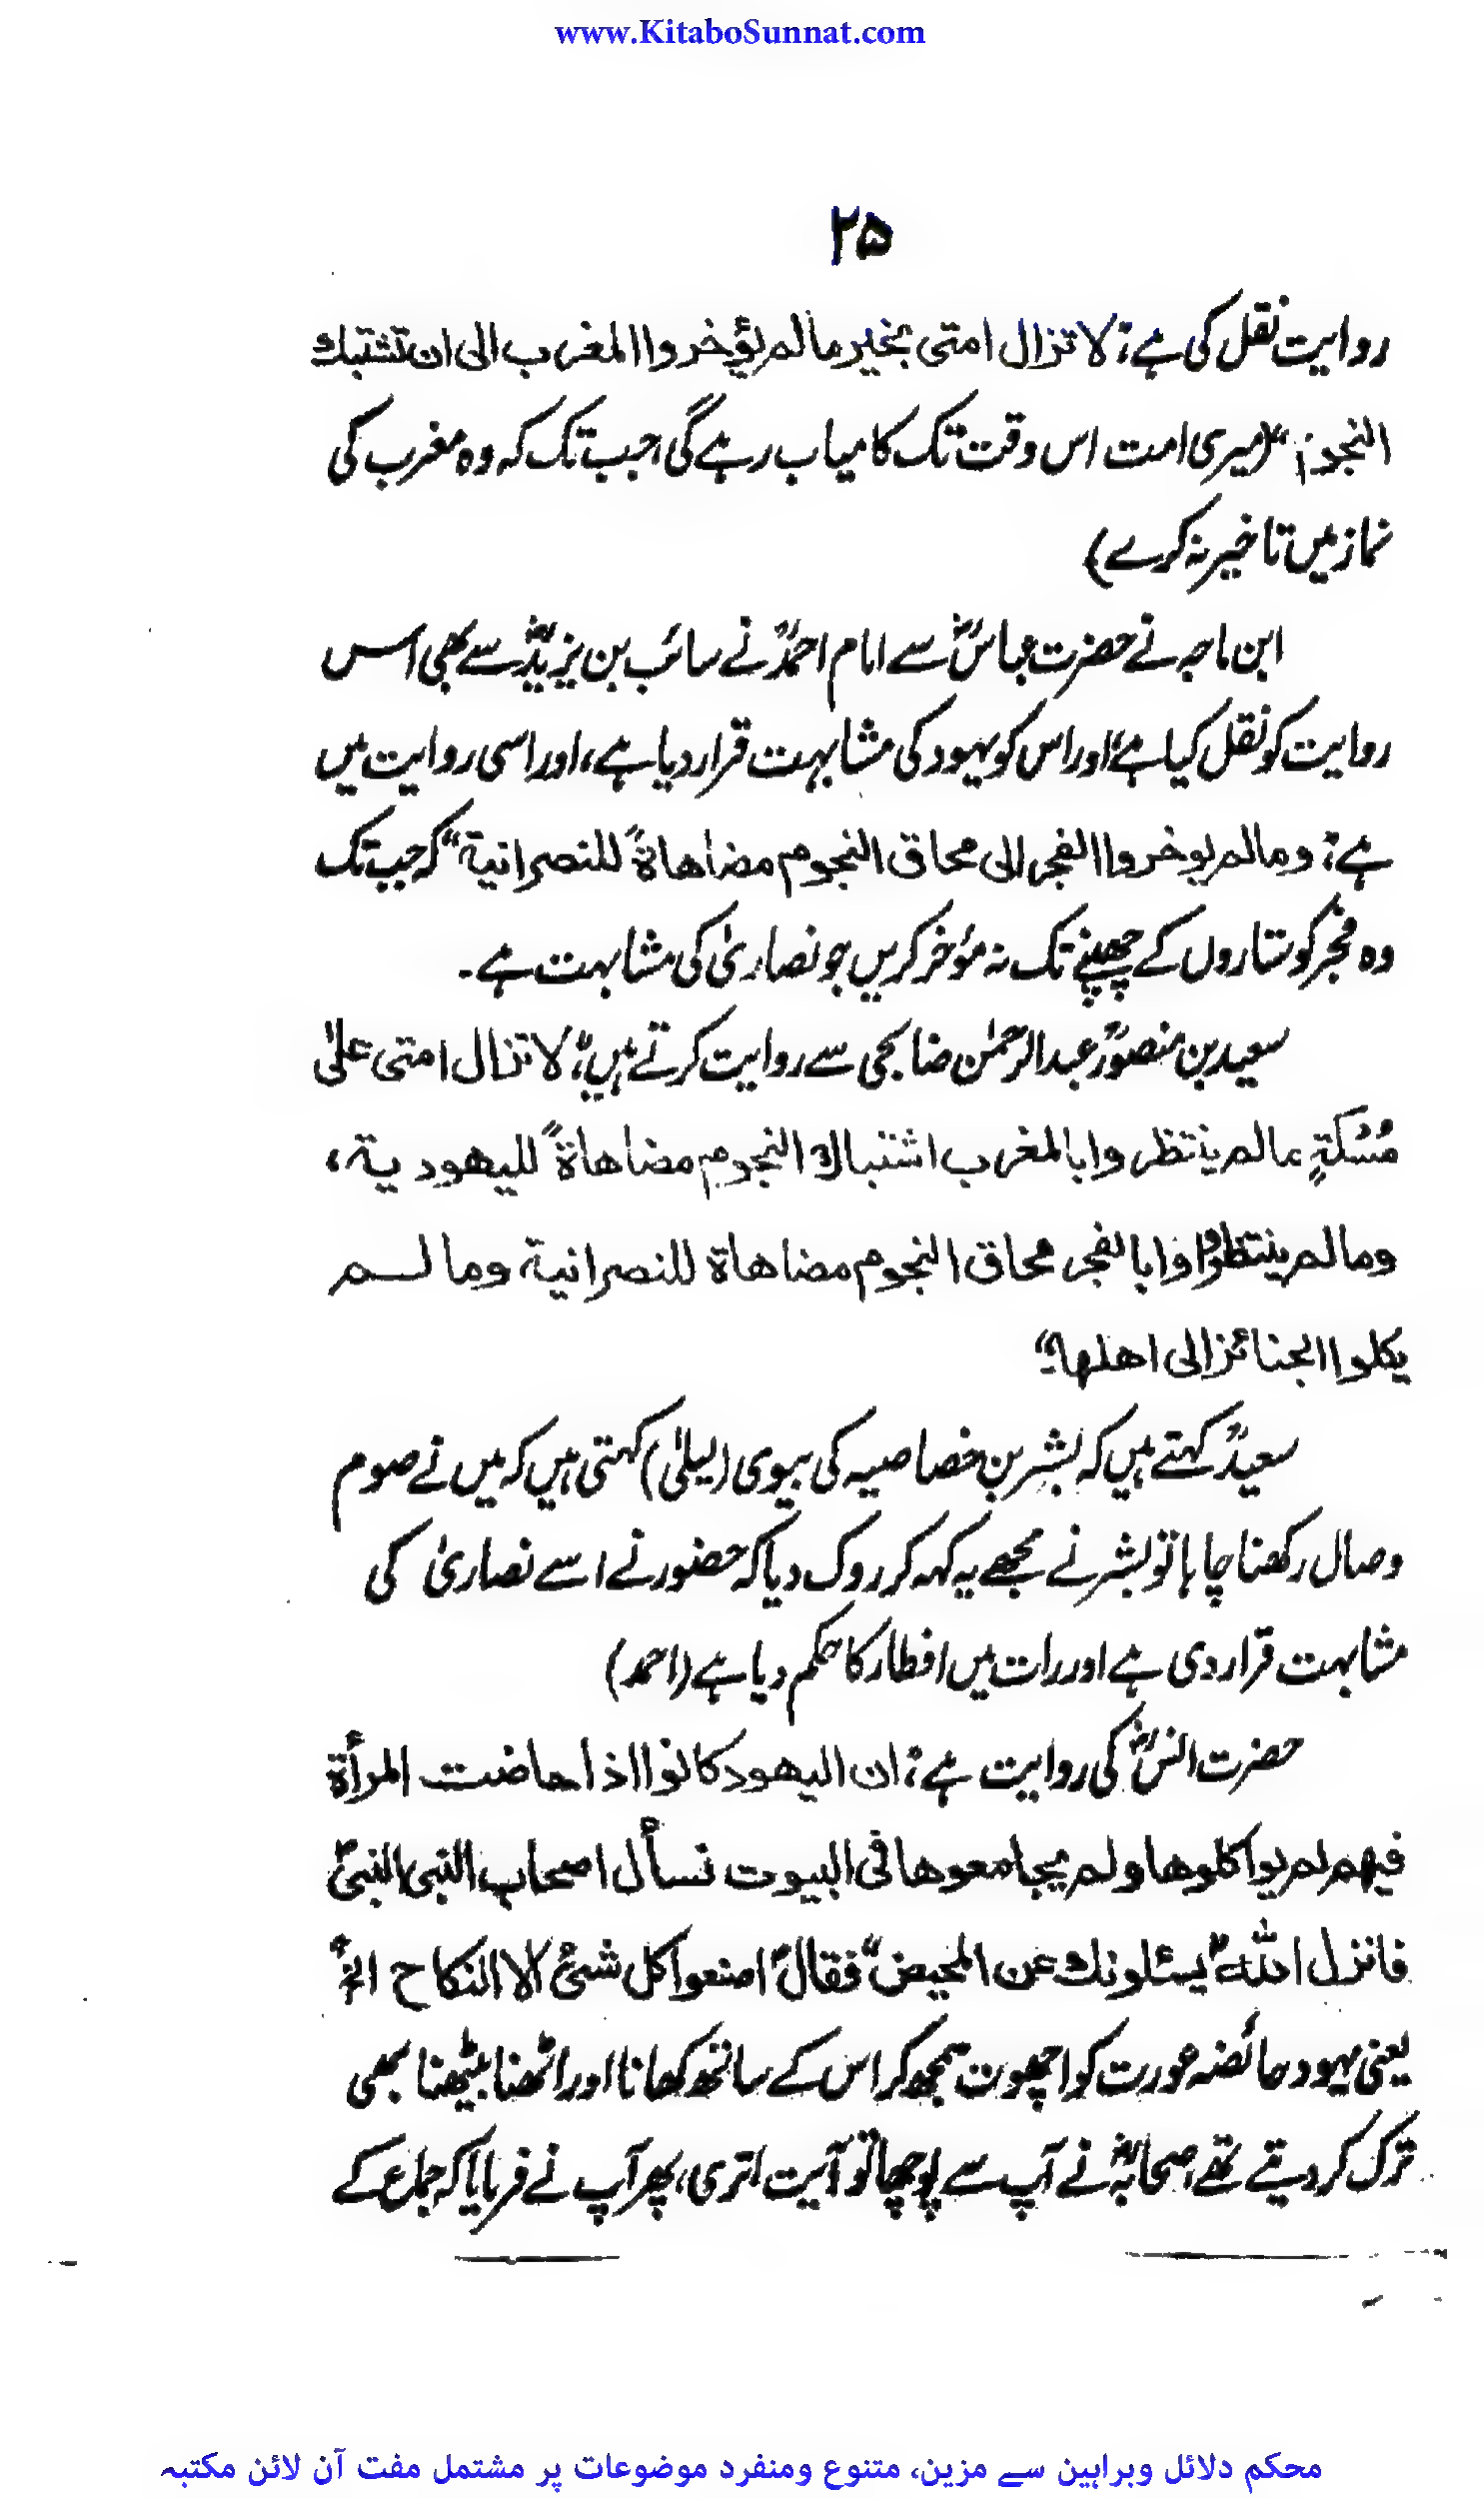 www.KitaboSunnat.com
۲۵
روایت نقل کی ہے: لا تزال امتی بخیر مالم یؤخروا المغرب الی ان تشتبک
النجوم" (میری امت اس وقت تک کامیاب رہے گی جب تک کہ وہ مغرب کی
نماز میں تاخیر نہ کرے)
ابن ماجہ نے حضرت عباسؓ سے امام احمدؒ نے سائب بن یزیدؓ سے بھی اس
روایت کو نقل کیا ہے، اور اس کو یہود کی مشابہت قرار دیا ہے، اور اسی روایت میں
ہے: ومالم یوخروا الفجر الی محاق النجوم مضاھاۃً للنصرانیۃ" کہ جب تک
وہ فجر کو ستاروں کے چھپنے تک نہ مؤخر کریں جو نصاریٰ کی مشابہت ہے۔
سعید بن منصورؒ عبدالرحمٰن ضابحی سے روایت کرتے ہیں: لا تزال امتی علیٰ
مُسْکَۃٍ مالم ینتظروا بالمغرب اشتباک النجوم مضاھاۃً للیھودیۃ،
ومالم ینتظروا وا بالفجر محاق النجوم مضاھاۃ للنصرانیۃ، ومالم
یکلوا الجنائز الی اھلھا"
سعیدؒ کہتے ہیں کہ بشر بن خصاصیہ کی بیوی (لیلیٰ) کہتی ہیں کہ میں نے صوم
وصال رکھنا چاہا تو بشر نے مجھے یہ کہہ کر روک دیا کہ حضور نے اسے نصاریٰ کی
مشابہت قرار دی ہے اور رات میں افطار کا حکم دیا ہے (احمد)
حضرت انسؓ کی روایت ہے: ان الیھود کانوا اذا حاضت المرأۃ
فیھم لم یواکلوھا ولم یجامعوھا فی البیوت نسأل اصحاب النبی النبیؐ
فانزل اللہ "یسئلونک عن المحیض" فقال" امنعوا کل شئ الا النکاح الخ"
یعنی یہود حائضہ عورت کو اچھوت سمجھ کر اس کے ساتھ کھانا اور اٹھنا بیٹھنا بھی
ترک کر دیتے تھے، صحابہؓ نے آپ سے پوچھا تو آیت اتری، پھر آپ نے فرمایا کہ جماع کے
محکم دلائل وبراہین سے مزین، متنوع ومنفرد موضوعات پر مشتمل مفت آن لائن مکتبہ